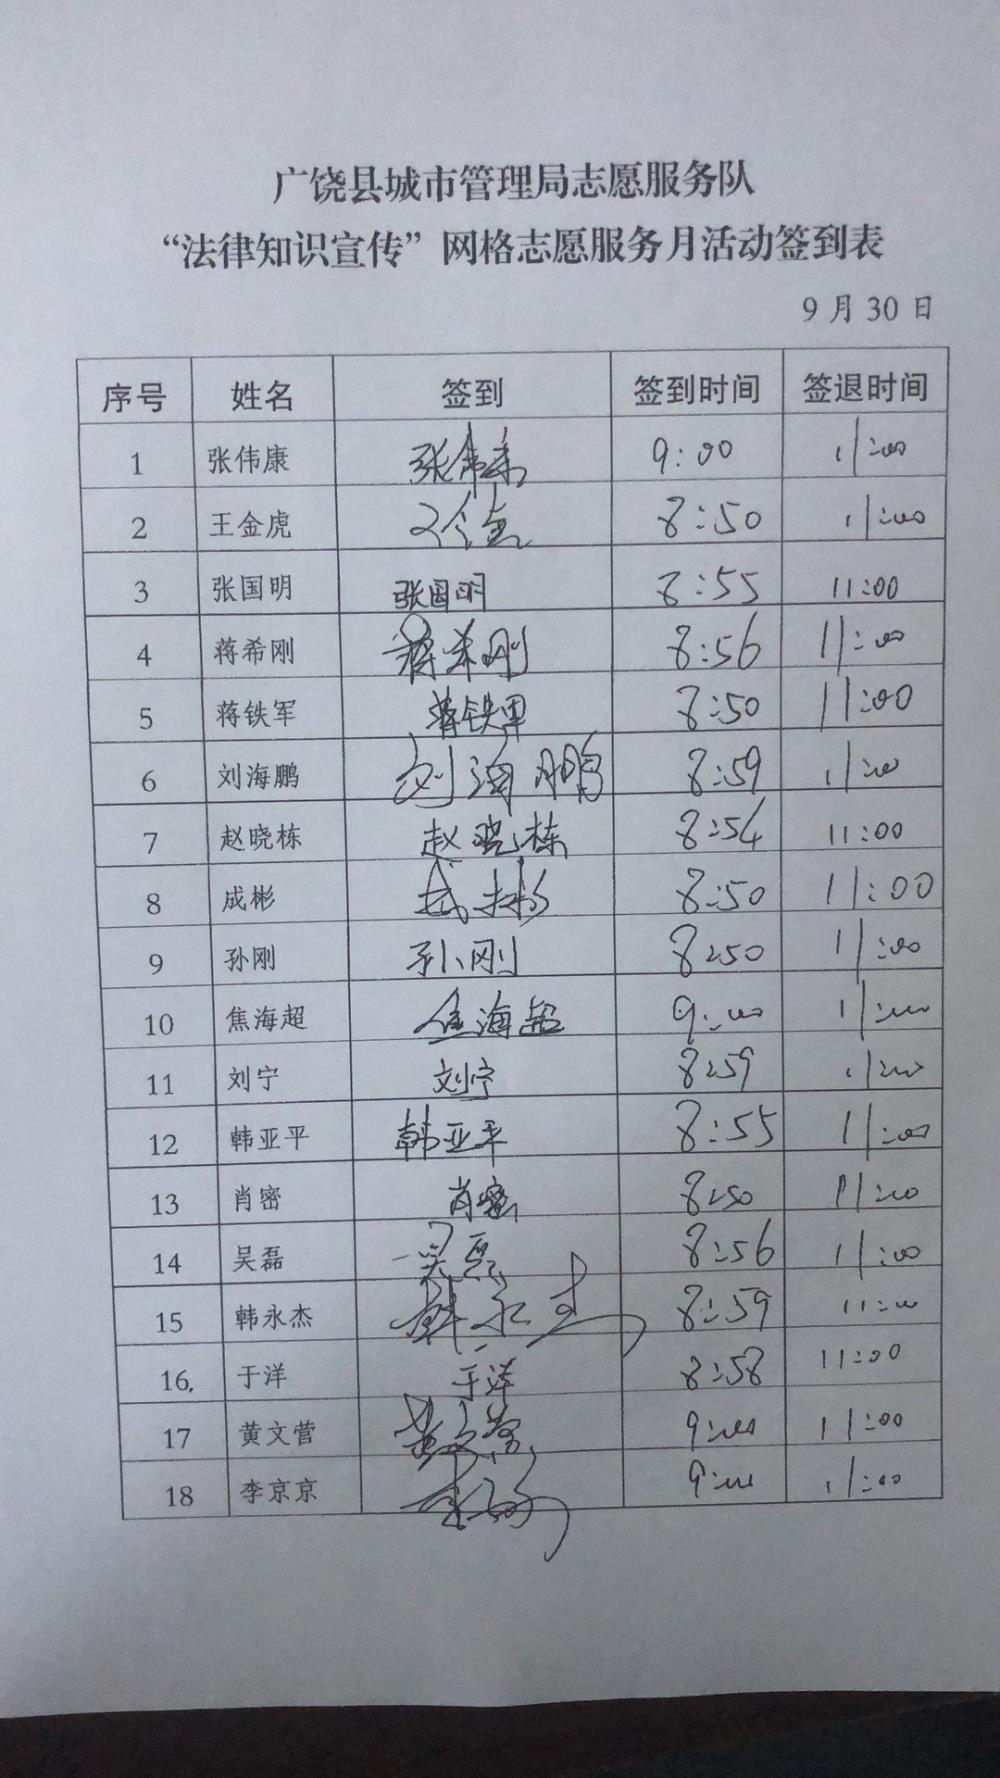 广饶县城市管理局志愿服务队
“法律知识宣传”网格志愿服务月活动签到表
9月30日
序号 姓名 签到 签到时间 签退时间
1 张伟康 张伟康 9:00 11:00
2 王金虎 8:50 11:00
3 张国明 张国明 8:55 11:00
4 蒋希刚 蒋希刚 8:56 11:00
5 蒋铁军 蒋铁军 8:50 11:00
6 刘海鹏 刘海鹏 8:59 11:00
7 赵晓栋 赵晓栋 8:54 11:00
8 成彬 成彬 8:50 11:00
9 孙刚 孙刚 8:50 11:00
10 焦海超 焦海超 9:00 11:00
11 刘宁 刘宁 8:59 11:00
12 韩亚平 韩亚平 8:55 11:00
13 肖密 肖密 8:50 11:00
14 吴磊 吴磊 8:56 11:00
15 韩永杰 韩永杰 8:59 11:00
16. 于洋 于洋 8:58 11:00
17 黄文营 黄文营 9:00 11:00
18 李京京 9:00 11:00